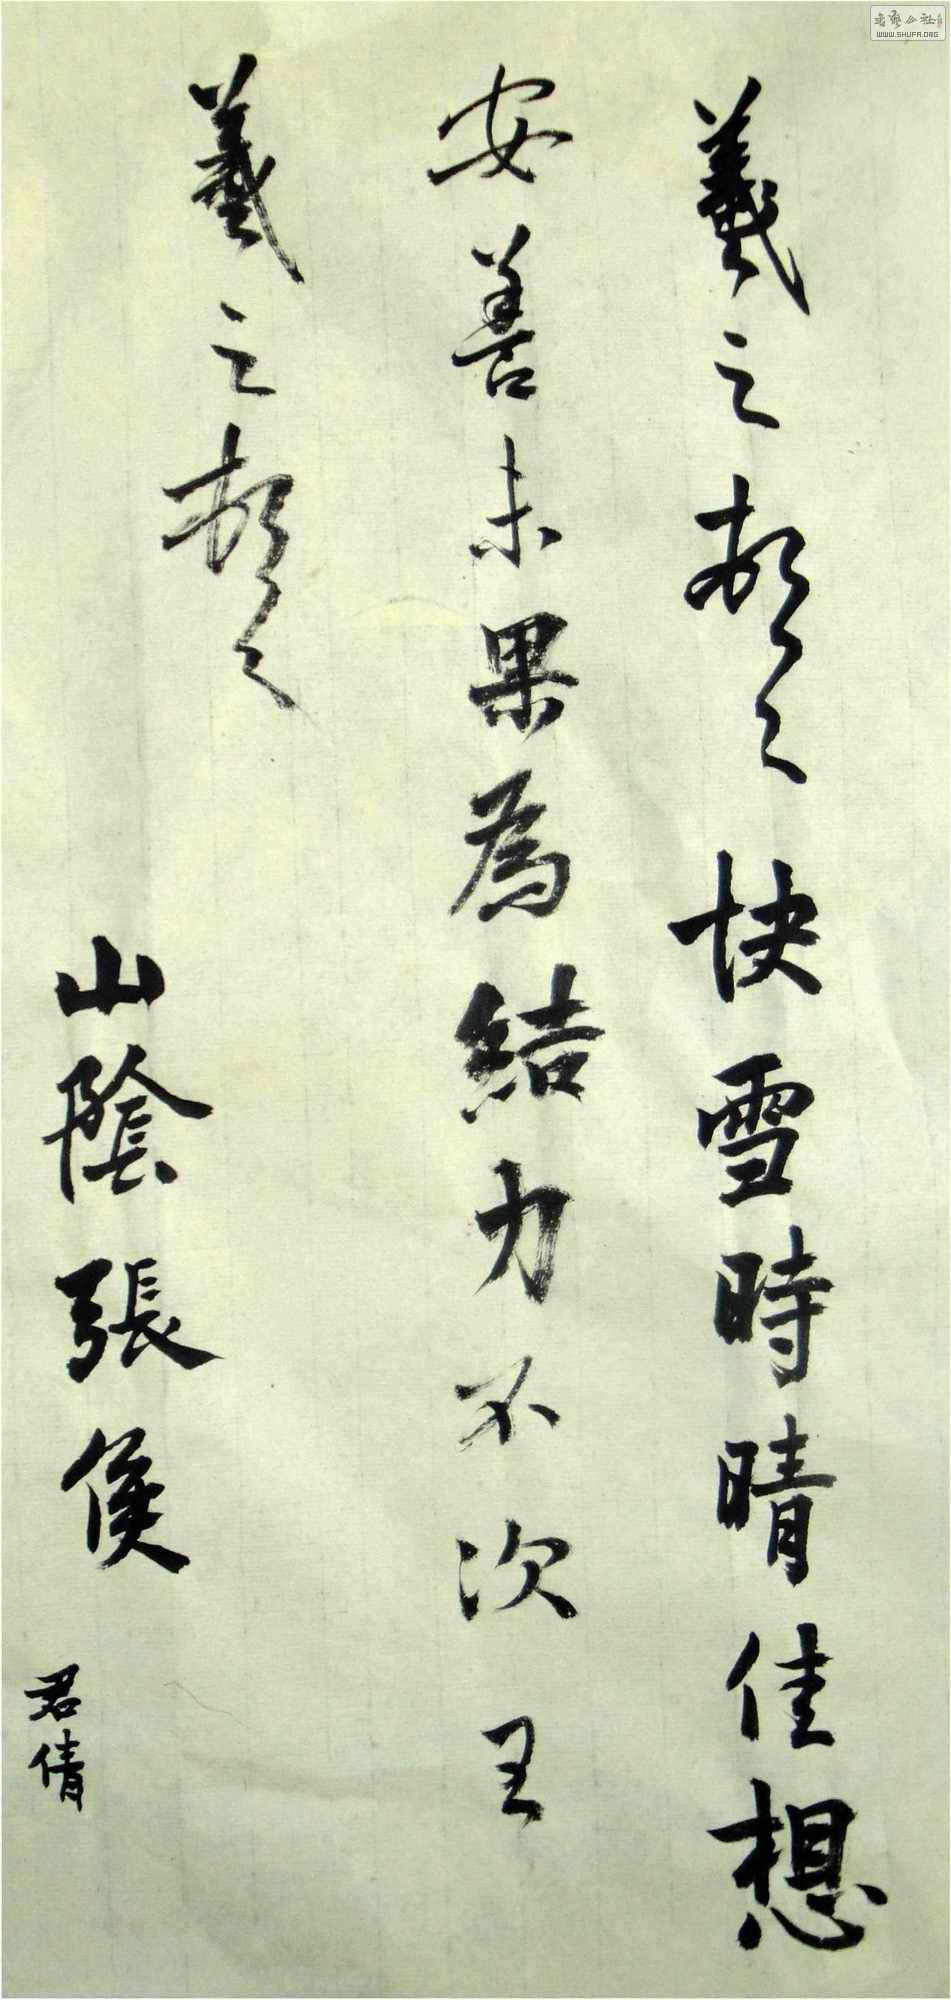 羲之頓首快雪時晴佳想
安善未果為結力不次王
羲之頓首
山陰張侯
君倩
书艺公社
WWW.SHUFA.ORG